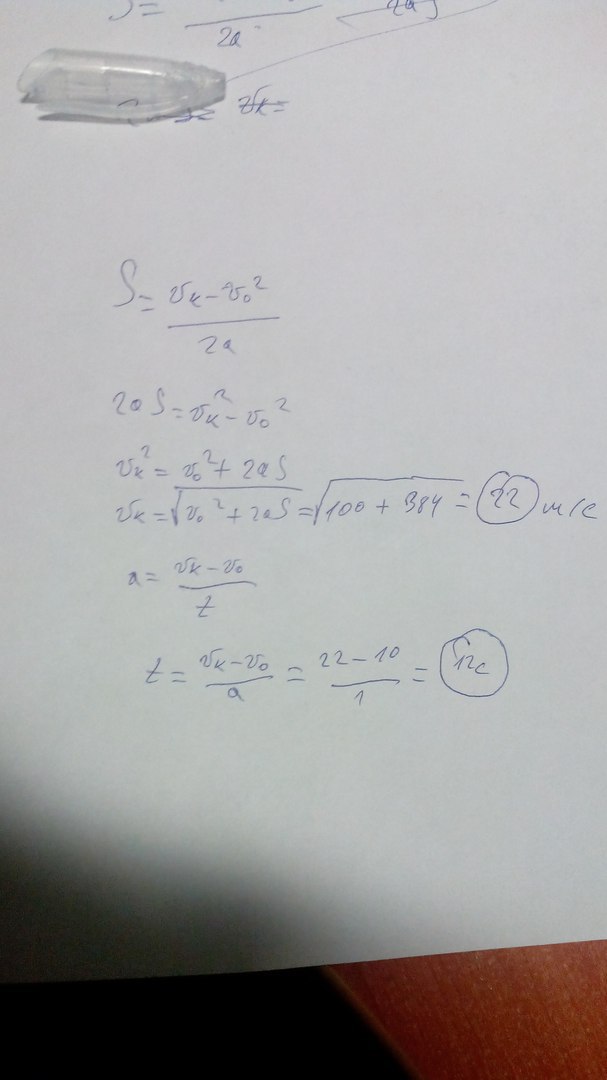 S=
2a
2aS
vк=
S = (vк - v₀²) / 2a
2aS = vк² - v₀²
vк² = v₀² + 2aS
vк = √(v₀² + 2aS) = √(100 + 384) = 22 м/с
a = (vк - v₀) / t
t = (vк - v₀) / a = (22 - 10) / 1 = 12с